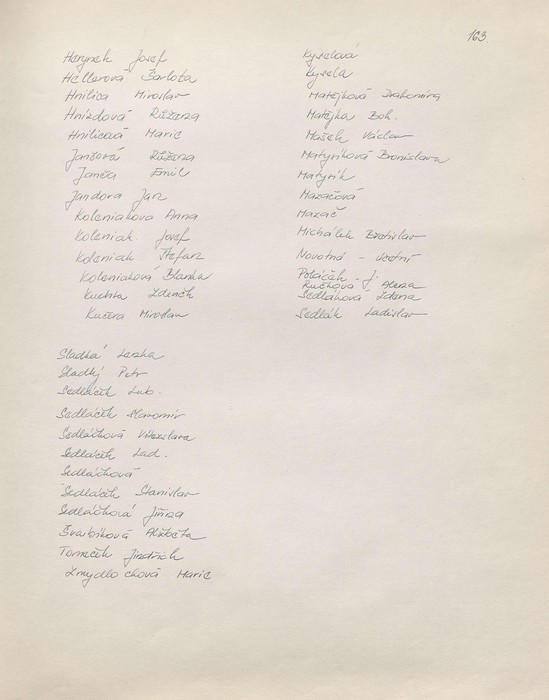 163
Herynek Josef
Hellerová Šarlota
Hnilica Miroslav
Hnízdová Růžena
Hnilicová Marie
Janšová Růžena
Janča Emil
Jandora Jan
Koleniaková Anna
Koleniak Josef
Koleniak Štefan
Koleniaková Blanka
Kuchta Zdeněk
Kučera Miroslav
Kyselová
Kysela
Matějková Drahomíra
Matějka Boh.
Mašek Václav
Matyriková Bronislava
Matyrik
Mazačová
Mazač
Michálek Bretislav
Novotná - účetní
Poláček J.
Ručková Alena
Sedláková Zdena
Sedlák Ladislav
Sladká Lenka
Sladký Petr
Sedláček Lub.
Sedláček Slavomír
Sedláčková Vítězslava
Sedláček Lad.
Sedláčková
Sedláček Stanislav
Sedláčková Jiřina
Švarbíková Alžběta
Tomeček Jindřich
Zmydlochová Marie